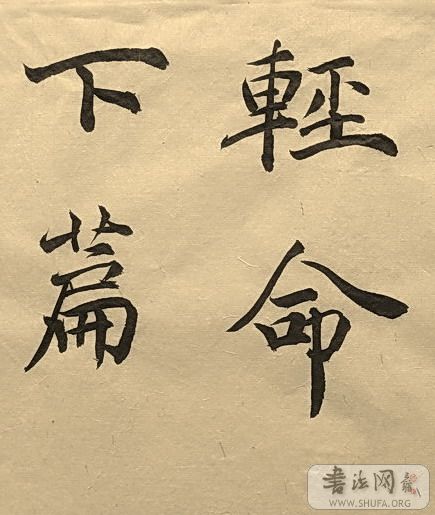 輕命
下篇
书法网
WWW.SHUFA.ORG